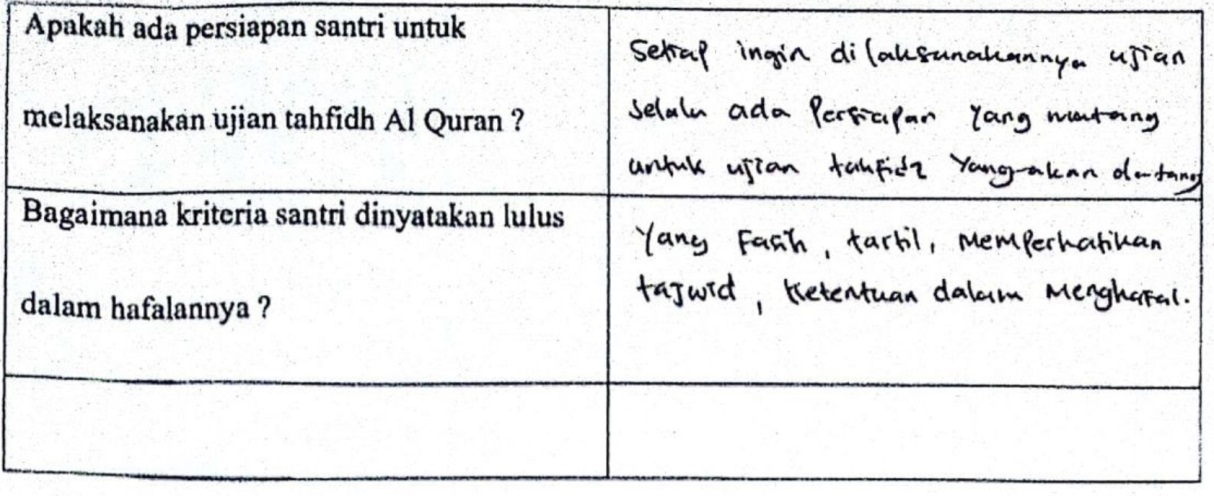 Apakah ada persiapan santri untuk
melaksanakan ujian tahfidh Al Quran ?
Setiap ingin dilaksanakannya ujian
selalu ada Persiapan yang matang
untuk ujian tahfidz yang akan datang
Bagaimana kriteria santri dinyatakan lulus
dalam hafalannya ?
Yang Fasih, tartil, Memperhatikan
tajwid, Ketentuan dalam Menghafal.